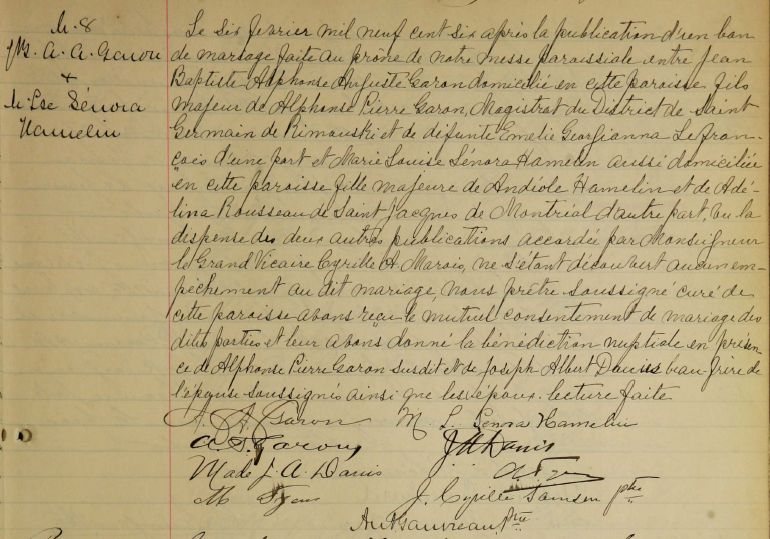 M. 8
J.Bte. A. A. Garon
+
M. Lse Sénora
Hamelin
Le six février mil neuf cent six après la publication d'un ban
de mariage faite au prône de notre messe paroissiale entre Jean
Baptiste Alphonse Auguste Garon domicilié en cette paroisse fils
majeur de Alphonse Pierre Garon, Magistrat du District de Saint
Germain de Rimouski et de défunte Emelie Georgianna Lefran-
çois d'une part et Marie Louise Sénora Hamelin aussi domiciliée
en cette paroisse fille majeure de Andiole Hamelin et de Adé-
lina Rousseau de Saint Jacques de Montréal d'autre part, vu la
dispense des deux autres publications accordée par Monseigneur
le Grand Vicaire Cyrille A. Marois, ne s'étant découvert aucun em-
pêchement au dit mariage, nous prêtre soussigné curé de
cette paroisse avons reçu le mutuel consentement de mariage des
dites parties et leur avons donné la bénédiction nuptiale en présen-
ce de Alphonse Pierre Garon susdit et de Joseph Albert Danis beau-frère de
l'épouse soussignés ainsi que les époux. lecture faite
A. A. Garon M. L. Senora Hamelin
A. P. Garon J A Danis
Made J. A. Danis
M
J. Cyrille Samson ptre
Ant Gauvreau, Ptre